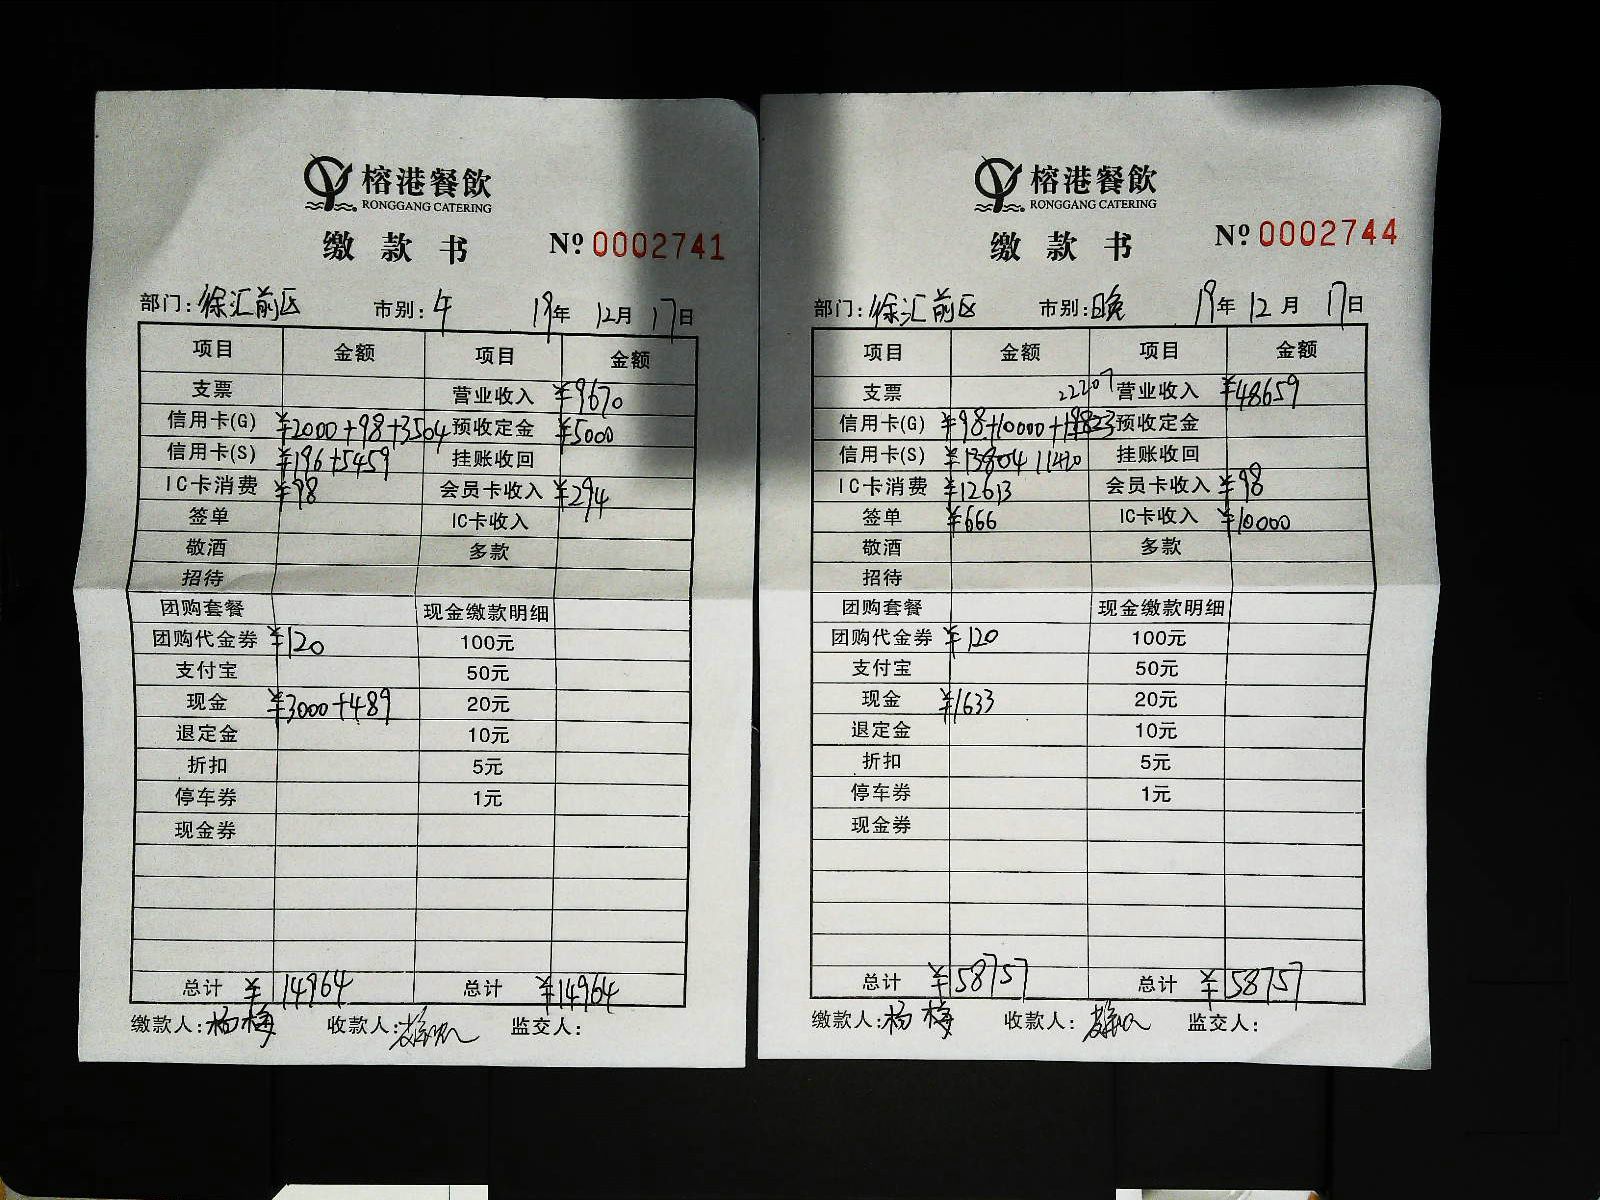 榕港餐飲
RONGGANG CATERING
缴款书 Nº 0002741
部门: 徐汇前区 市别: 午 19年 12月 17日
项目 金额 项目 金额
支票 营业收入 ¥9670
信用卡(G) ¥2000+98+3504 预收定金 ¥5000
信用卡(S) ¥196+5459 挂账收回
IC卡消费 ¥98 会员卡收入 ¥294
签单 IC卡收入
敬酒 多款
招待
团购套餐 现金缴款明细
团购代金券 ¥120 100元
支付宝 50元
现金 ¥3000+489 20元
退定金 10元
折扣 5元
停车券 1元
现金券
总计 ¥14964 总计 ¥14964
缴款人: 杨梅 收款人: 监交人:
榕港餐飲
RONGGANG CATERING
缴款书 Nº 0002744
部门: 徐汇前区 市别: 晚 19年 12月 17日
项目 金额 项目 金额
支票 22207 营业收入 ¥48659
信用卡(G) ¥98+10000+ 预收定金
信用卡(S) ¥13804 11420 挂账收回
IC卡消费 ¥12613 会员卡收入 ¥98
签单 ¥666 IC卡收入 ¥10000
敬酒 多款
招待
团购套餐 现金缴款明细
团购代金券 ¥120 100元
支付宝 50元
现金 ¥1633 20元
退定金 10元
折扣 5元
停车券 1元
现金券
总计 ¥58757 总计 ¥58757
缴款人: 杨梅 收款人: 监交人: